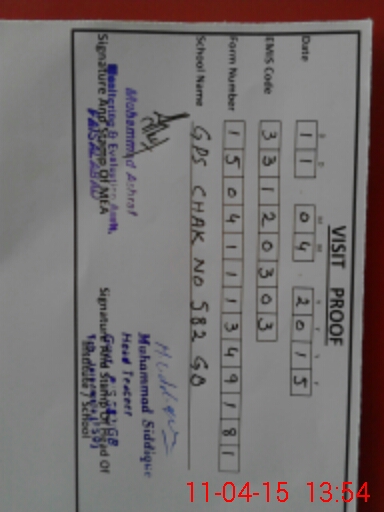 VISIT PROOF
Date 11 . 04 . 2015
EMIS Code 33120303
Form Number 1504111349181
School Name GPS CHAK NO 582 GB
Muhammad Ashraf
Monitoring & Evaluation Asstt,
FAISALABAD
Signature And Stamp Of MEA
Muhammad Siddique
Head Teacer
Signature And Stamp Of Head Of
Institute / School
11-04-15 13:54